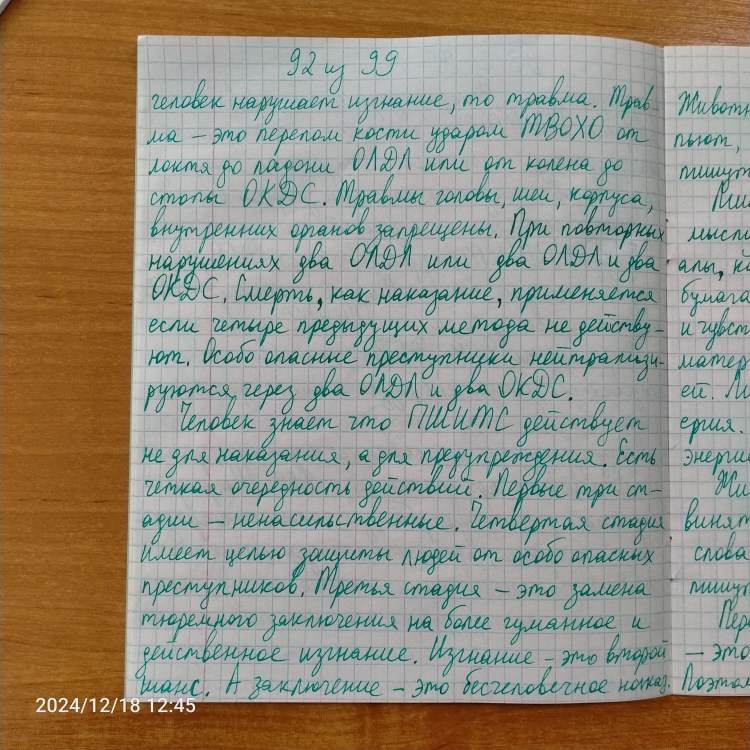 92 из 99
человек нарушает изгнание, то травма. Трав-
ма – это перелом кости ударом ТВОХО от
локтя до ладони ОЛДЛ или от колена до
стопы ОКДС. Травмы головы, шеи, корпуса,
внутренних органов запрещены. При повторных
нарушениях два ОЛДЛ или два ОЛДЛ и два
ОКДС. Смерть, как наказание, применяется
если четыре предыдущих метода не действу-
ют. Особо опасные преступники нейтрализи-
руются через два ОЛДЛ и два ОКДС.
Человек знает что ПШИТС действует
не для наказания, а для предупреждения. Есть
чёткая очередность действий. Первые три ст-
адии – ненасильственные. Четвертая стадия
имеет целью защиты людей от особо опасных
преступников. Третья стадия – это замена
тюремного заключения на более гуманное и
действенное изгнание. Изгнание – это второй
шанс. А заключение – это бесчеловечное наказ.
Животн
пьют,
пишут
мысли
апы, к
бумаго
и чувст
матер
ей. Ли
ерия.
энерги
Жи
винят
слова
пишут
Пер
– это
Поэтом
2024/12/18 12:45